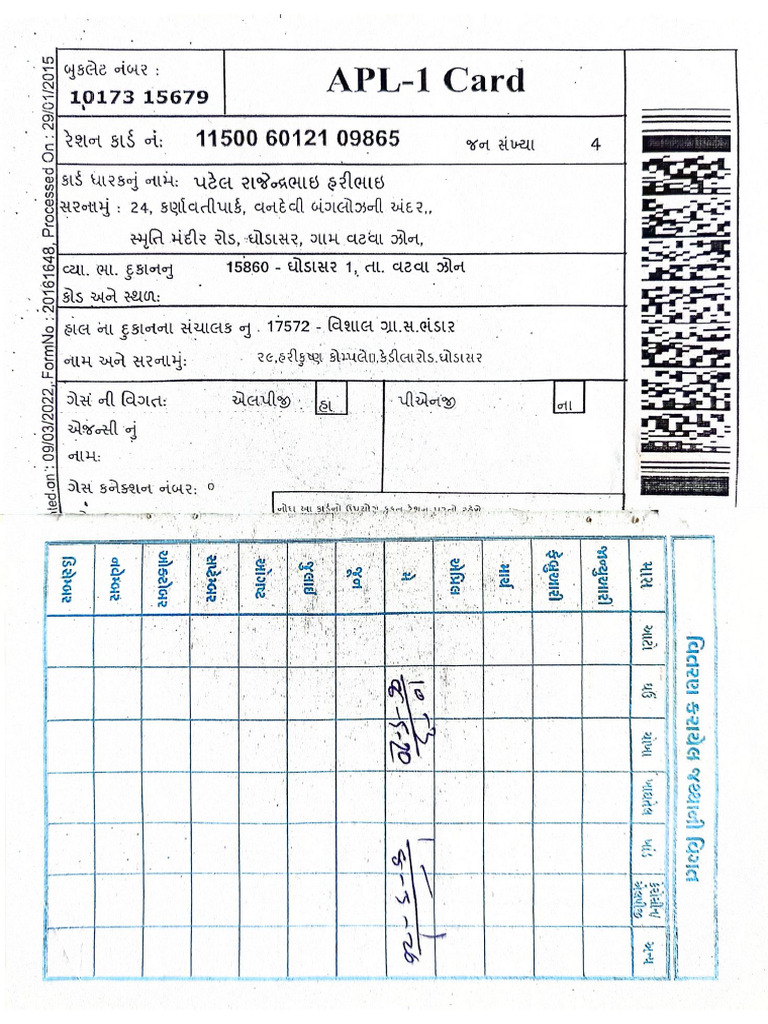 બુકલેટ નંબર :
10173 15679
APL-1 Card
રેશન કાર્ડ નં: 11500 60121 09865 જન સંખ્યા 4
કાર્ડ ધારકનું નામ: પટેલ રાજેન્દ્રભાઇ હરીભાઇ
સરનામું : 24, કર્ણાવતીપાર્ક, વનદેવી બંગલોઝની અંદર,,
સ્મૃતિ મંદીર રોડ, ઘોડાસર, ગામ વટવા ઝોન,
વ્યા. ભા. દુકાનનુ 15860 - ઘોડાસર 1, તા. વટવા ઝોન
કોડ અને સ્થળ:
હાલ ના દુકાનના સંચાલક નુ . 17572 - વિશાલ ગ્રા.સ.ભંડાર
નામ અને સરનામું: ૨૯,હરીકૃષ્ણ કોમ્પલે,કેડીલારોડ.ઘોડાસર
ગેસ ની વિગત: એલપીજી હા પીએનજી ના
એજન્સી નું
નામ:
ગેસ કનેક્શન નંબર: ૦
નોંધ આ કાર્ડનો ઉપયોગ ફક્ત રેશન
ted.on : 09/03/2022, FormNo : 20161648, Processed On : 29/01/2015
વિતરણ કરાયેલ જથ્થાની વિગત
માસ આટો ઘઉં ચોખા ખાદ્યતેલ ખાંડ કેરોસીન/ એલપીજી અન્ય
જાન્યુઆરી
ફેબ્રુઆરી
માર્ચ
એપ્રિલ
મે
જૂન
જુલાઈ
ઓગષ્ટ
સપ્ટેમ્બર
ઓક્ટોબર
નવેમ્બર
ડિસેમ્બર